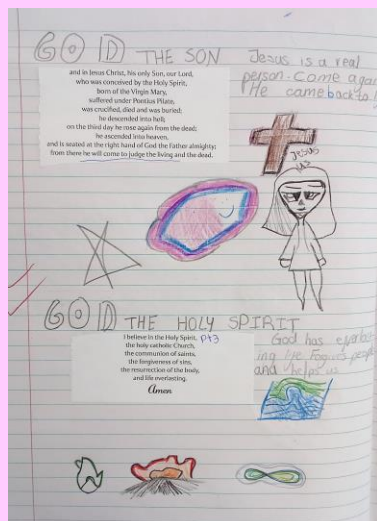 GOD THE SON
and in Jesus Christ, his only Son, our Lord,
who was conceived by the Holy Spirit,
born of the Virgin Mary,
suffered under Pontius Pilate,
was crucified, died and was buried;
he descended into hell;
on the third day he rose again from the dead;
he ascended into heaven,
and is seated at the right hand of God the Father almighty;
from there he will come to judge the living and the dead.
Jesus is a real
person. Come again
He came back to
Jesus
GOD THE HOLY SPIRIT
I believe in the Holy Spirit, pt3
the holy catholic Church,
the communion of saints,
the forgiveness of sins,
the resurrection of the body,
and life everlasting.
Amen
God has
ing life
and helps us